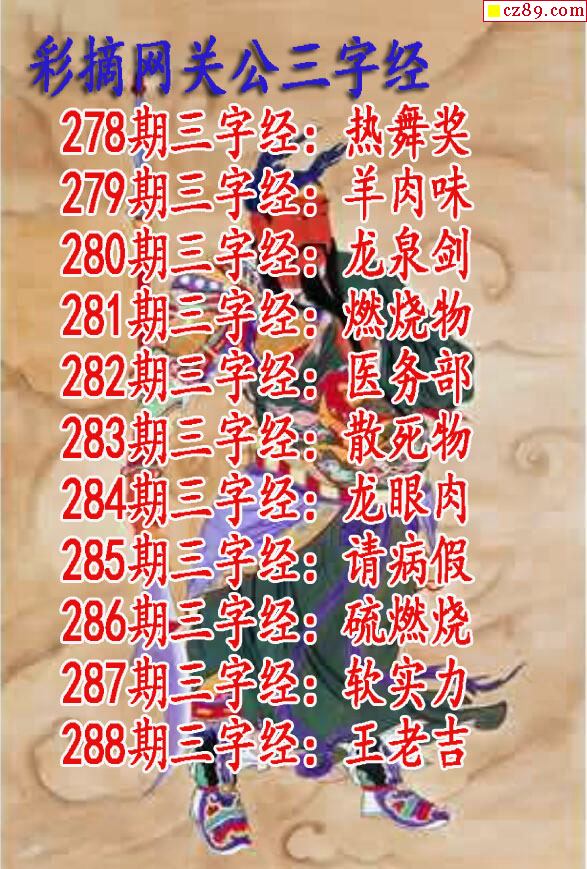 cz89.com
彩摘网关公三字经
278期三字经：热舞奖
279期三字经：羊肉味
280期三字经：龙泉剑
281期三字经：燃烧物
282期三字经：医务部
283期三字经：散死物
284期三字经：龙眼肉
285期三字经：请病假
286期三字经：硫燃烧
287期三字经：软实力
288期三字经：王老吉